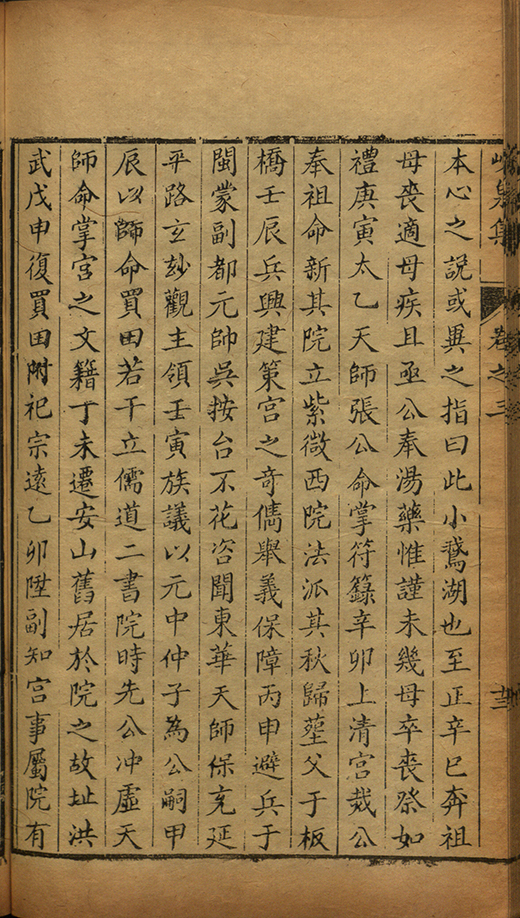 峴泉集 卷之三 十三
本心之說或異之指曰此小鵞湖也至正辛巳奔祖
母喪適母疾且亟公奉湯藥惟謹未幾母卒喪祭如
禮庚寅太乙天師張公命掌符籙辛卯上清宮裁公
奉祖命新其院立紫微西院法派其秋歸塟父于板
橋壬辰兵興建策宮之奇儁舉義保障丙申避兵于
閩蒙副都元帥吳按台不花咨聞東華天師保充延
平路玄玅觀主領壬寅族議以元中仲子為公嗣甲
辰以師命買田若干立儒道二書院時先公冲虛天
師命掌宮之文籍丁未遷安山舊居於院之故址洪
武戊申復買田附祀宗遠乙卯陞副知宮事屬院有